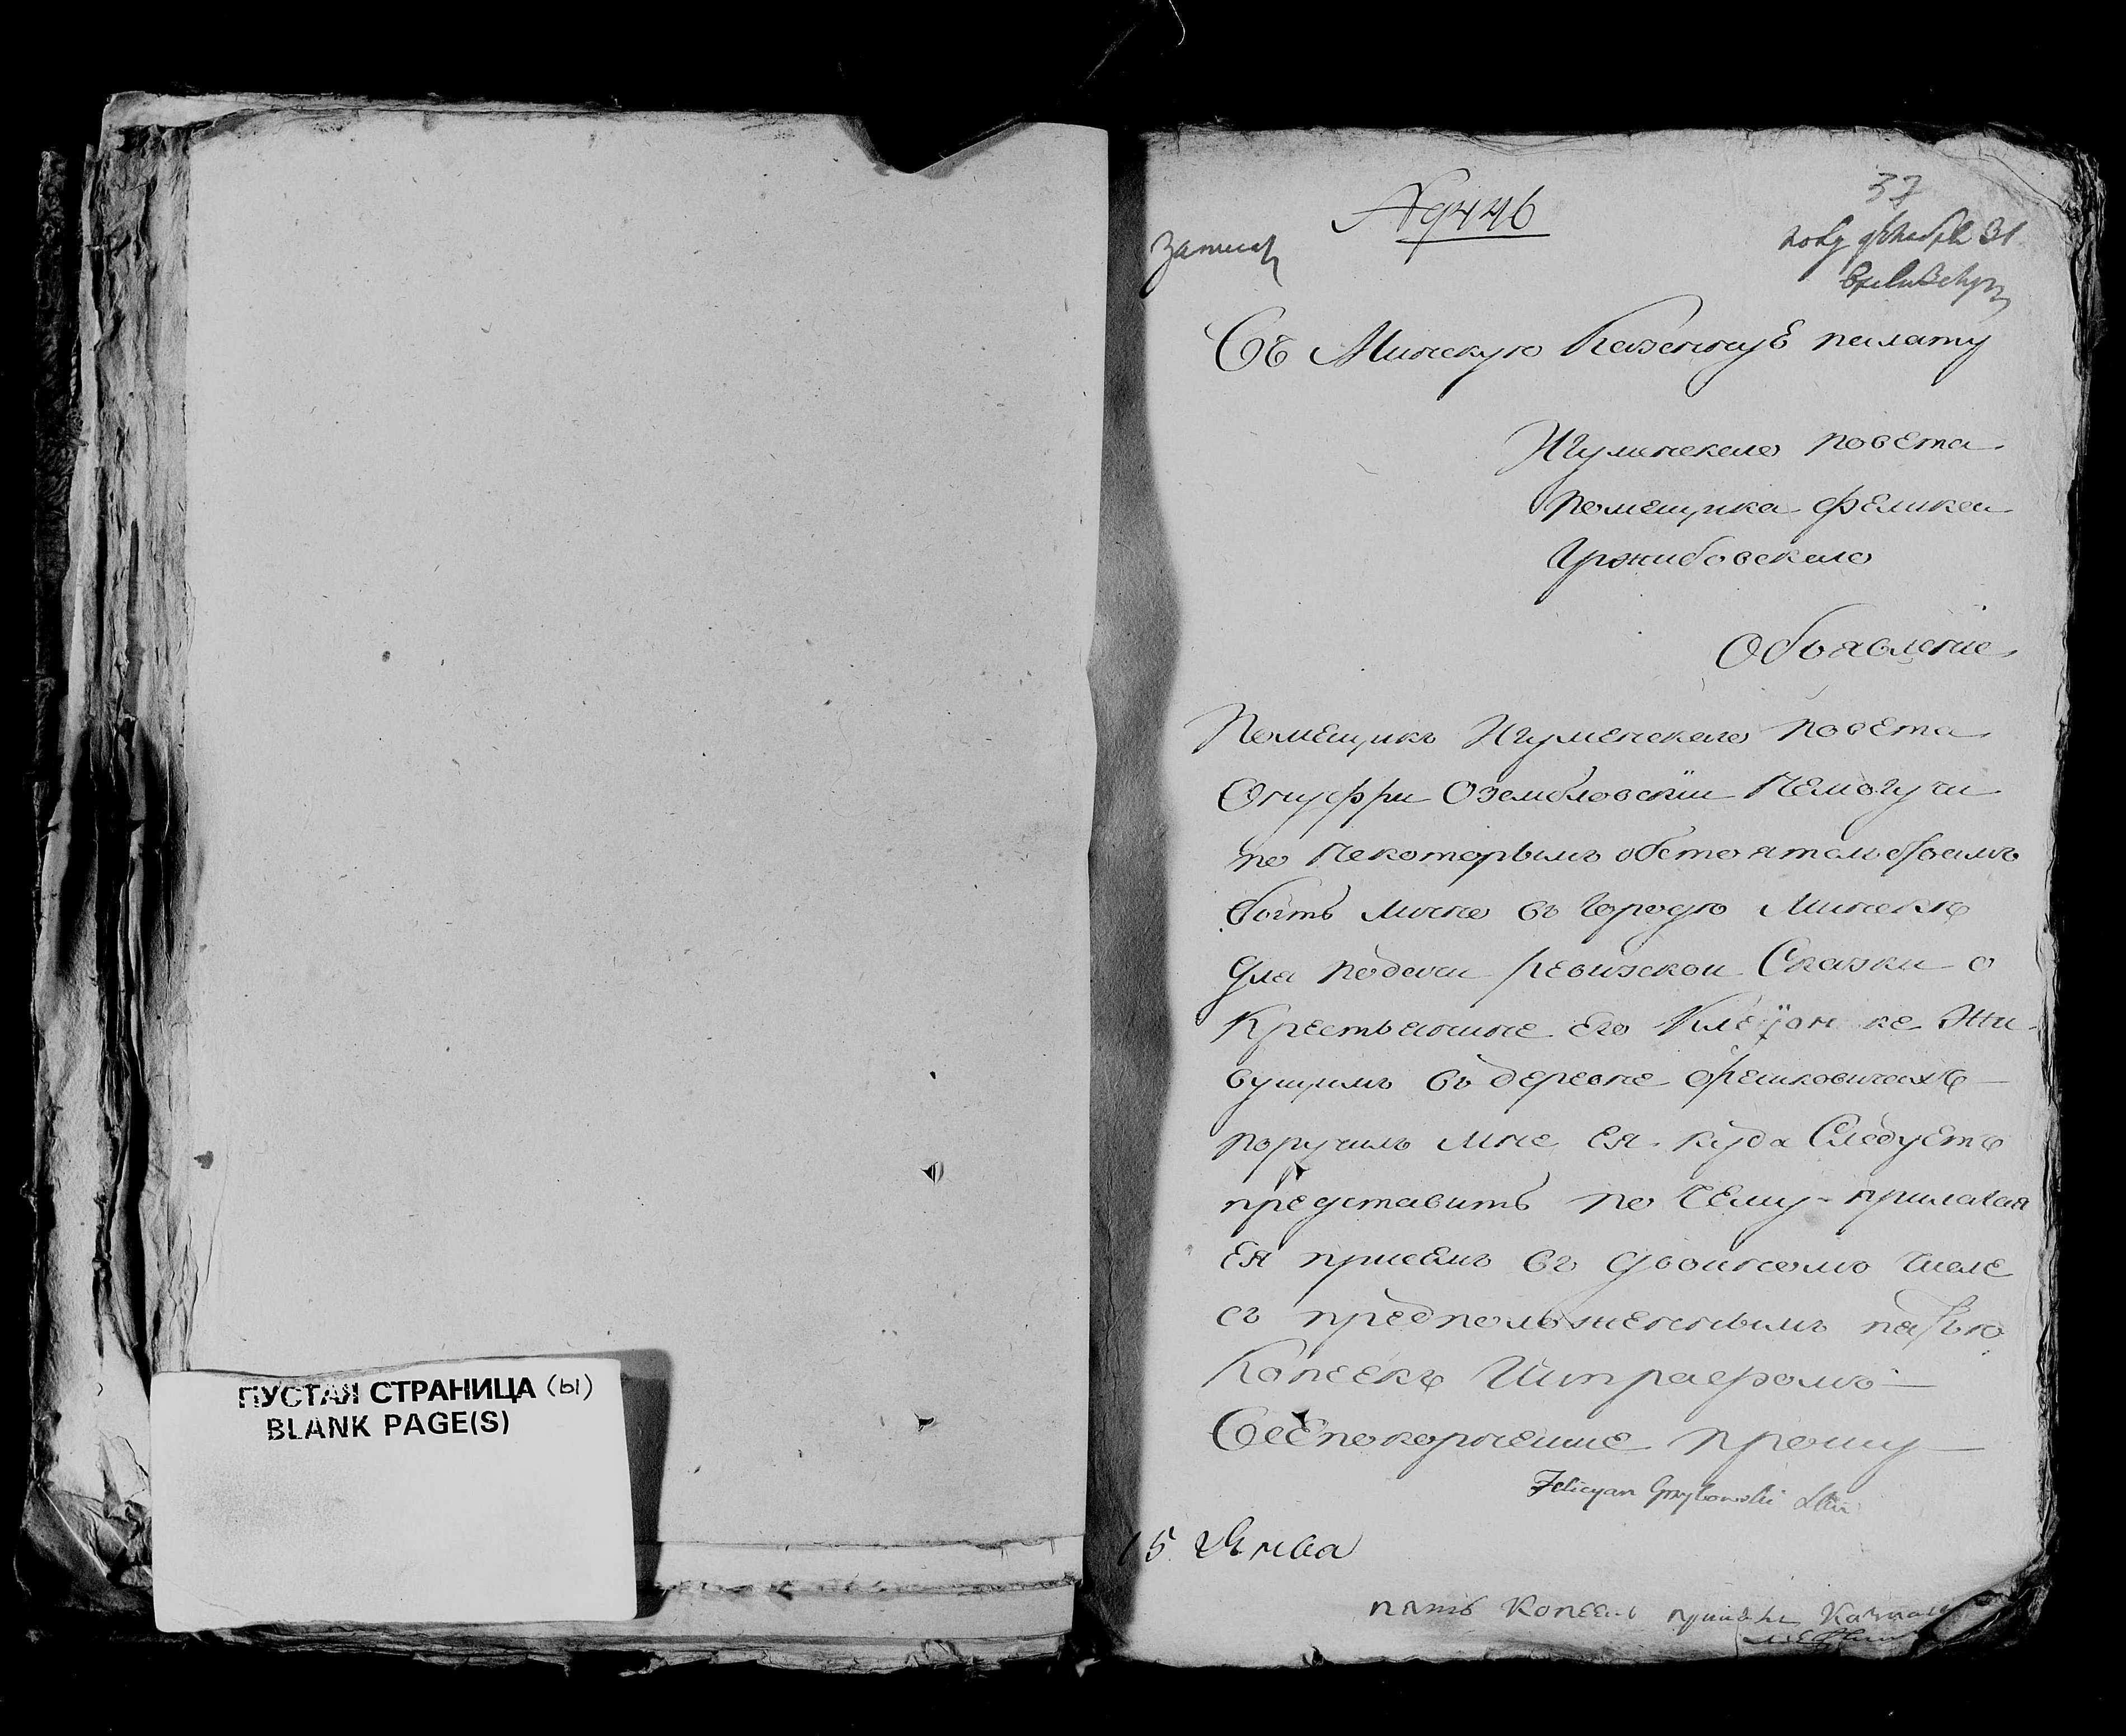 ПУСТАЯ СТРАНИЦА (Ы)
BLANK PAGE(S)
37
№ 9446
Въ Минскую Казенную палату
Игуменскаго повета
Помещика Феликса
Гржибовскаго
Объявление
Помещикъ Игуменскаго повета
Онуфри Озембловский немогучи
по некоторымъ обстоятельствамъ
быть лично въ городе Минске
для подачи ревизской Сказки о
Крестьянине его жи-
вущимъ въ деревне Орешковичахъ
поручилъ мне ея куда Следуетъ
представить по чему прилагая
ея при семъ въ двойномъ числе
съ предположеннымъ пятью
Копеекъ Штрафомъ
Всепокорнейше прошу
Felicyan Grzybowski
15 Янва
пять Копеекъ